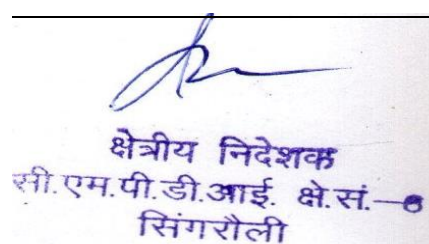 क्षेत्रीय निदेशक
सी.एम.पी.डी.आई. क्षे.सं.–6
सिंगरौली